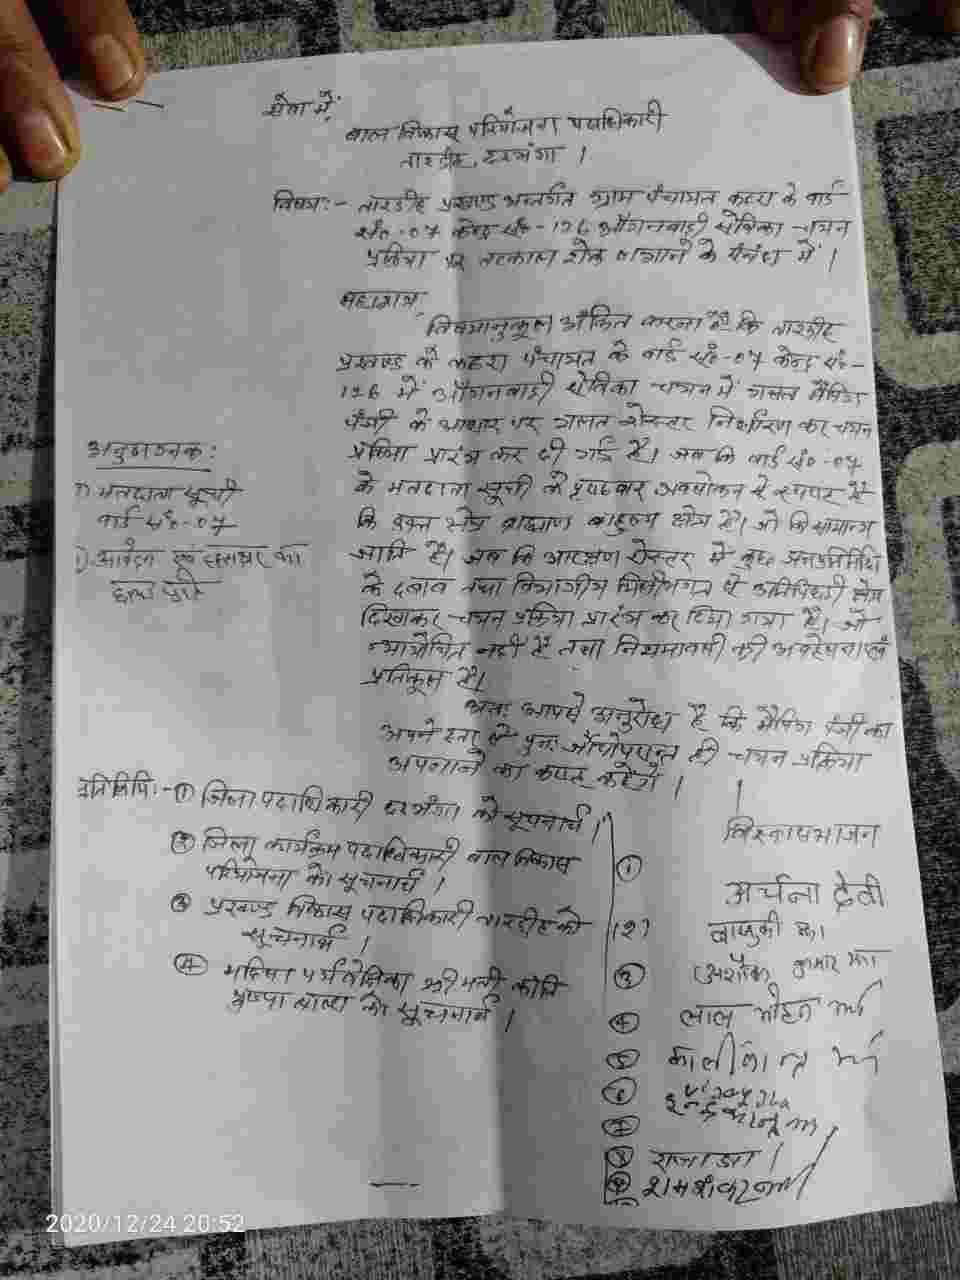 सेवा में,
बाल विकास परियोजना पदाधिकारी
तारडीह, दरभंगा ।
विषय:- तारडीह प्रखण्ड अन्तर्गत ग्राम पंचायत कठरा के वार्ड
सं०-07 केन्द्र सं०-126 आँगनबाड़ी सेविका चयन
प्रक्रिया पर तत्काल रोक लगाने के संबंध में ।
महाशय,
विषयानुकूल अंकित करना है कि तारडीह
प्रखण्ड के कठरा पंचायत के वार्ड सं०-07 केन्द्र सं०-
126 में आँगनबाड़ी सेविका चयन में गलत मैपिंग
पंजी के आधार पर गलत रोस्टर निर्धारण कर चयन
प्रक्रिया प्रारंभ कर दी गई है। जब कि वार्ड सं०-07
के मतदाता सूची के पृष्ठवार अवलोकन से स्पष्ट है
कि उक्त क्षेत्र ब्राह्मण बाहुल्य क्षेत्र है। जो कि सामान्य
जाति है। जब कि आरक्षण रोस्टर में कुछ जनप्रतिनिधि
के दबाव तथा विभागीय मिलीभगत से अतिपिछड़ी क्षेत्र
दिखाकर चयन प्रक्रिया प्रारंभ कर दिया गया है। जो
न्यायोचित नहीं है तथा नियमावली की अवहेलना एवं
प्रतिकूल है।
अतः आपसे अनुरोध है कि मैपिंग पंजी का
अपने स्तर से पुनः जाँचोपरान्त ही चयन प्रक्रिया
अपनाने का कष्ट करेंगे ।
अनुलग्नक:
1) मतदाता सूची
वार्ड सं०-07
आवेदन एवं हस्ताक्षर का
छाया प्रति
प्रतिलिपि:- ① जिला पदाधिकारी दरभंगा को सूचनार्थ ।
② जिला कार्यक्रम पदाधिकारी बाल विकास
परियोजना को सूचनार्थ ।
③ प्रखण्ड विकास पदाधिकारी तारडीह को
सूचनार्थ ।
④ महिला पर्यवेक्षिका श्रीमती
पुष्पा को सूचनार्थ ।
विश्वासभाजन
① अर्चना देवी
(2) वासुकी झा
③ अशोक कुमार झा
④ लाल मोहन झा
⑤ कालीकान्त झा
⑥
⑦
⑧ राजा झा
⑨ रामशंकर झा
2020/12/24 20:52